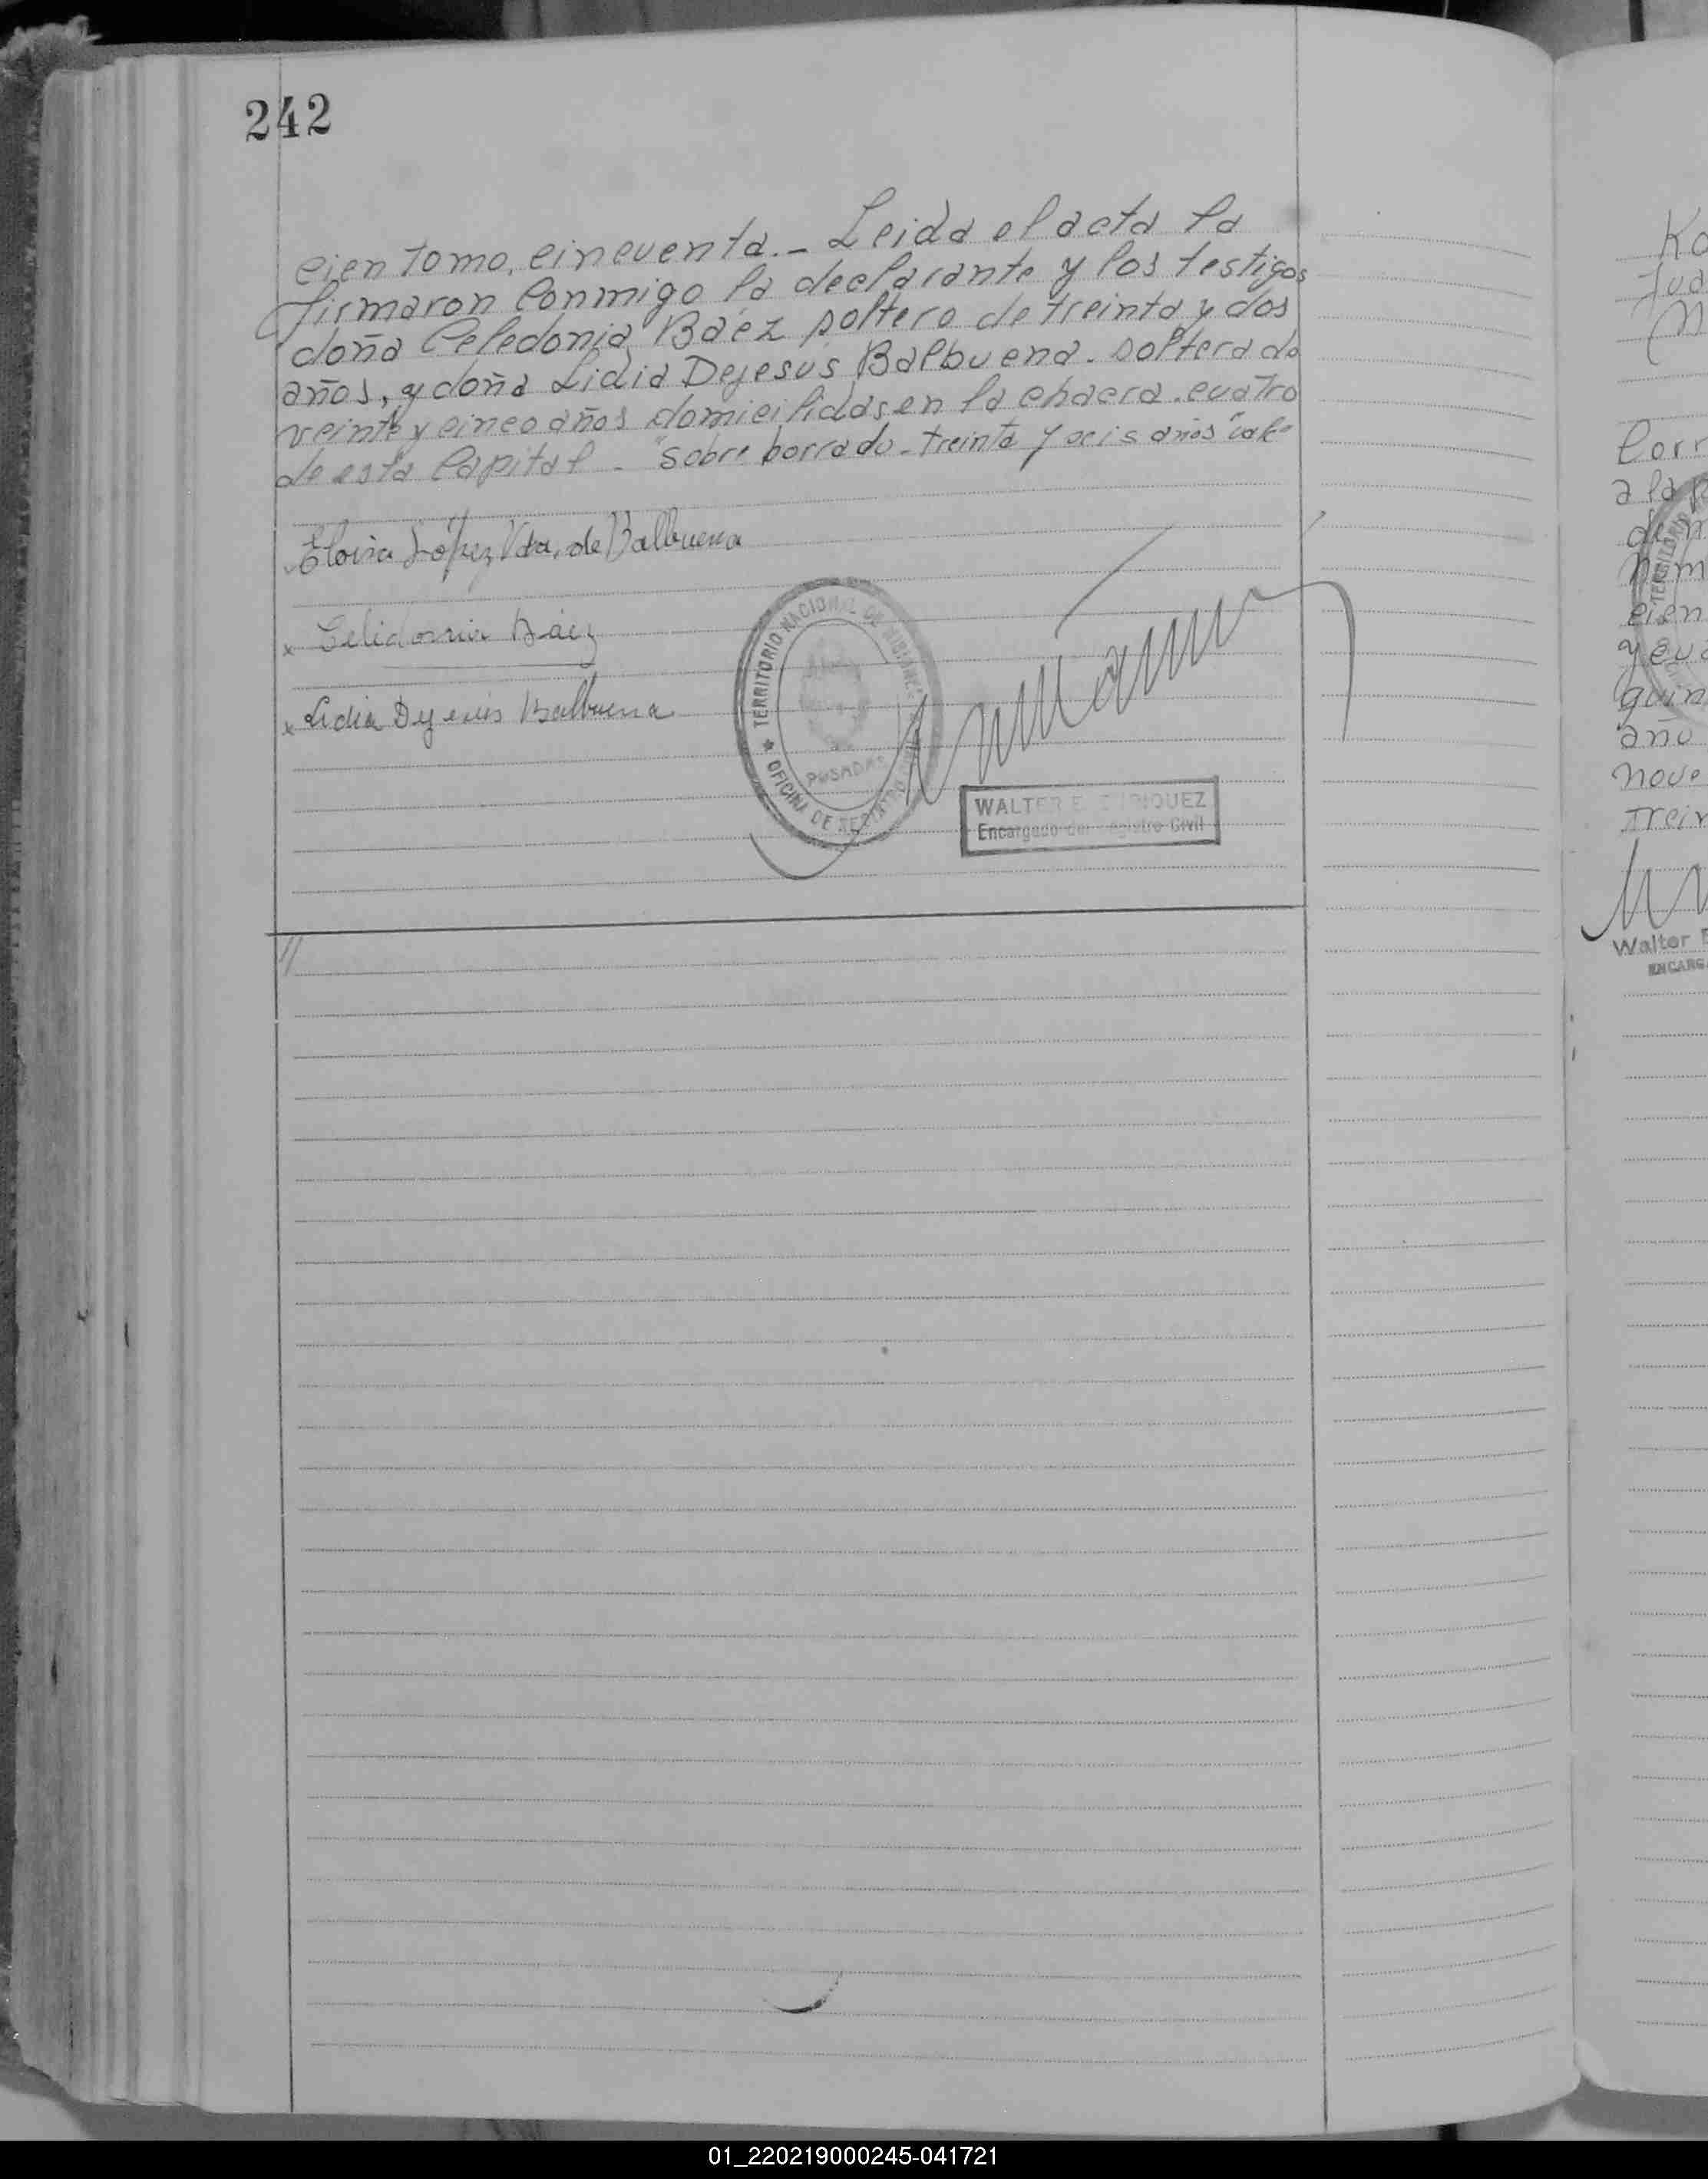 242
cien tomo, cincuenta.- Leida el acta la
firmaron conmigo la declarante y los testigos
doña Celedonia Báez soltera de treinta y dos
años, y doña Lidia Dejesús Balbuena. soltera de
veinte y cinco años domiciliadas en la chacra. cuatro
de esta Capital - "Sobre borrado - treinta y seis años" vale
Eloisa López Vda. de Balbuena
x Celidonia Báez
x Lidia Dejesús Balbuena
TERRITORIO NACIONAL DE MISIONES
POSADAS
OFICINA DE REGISTRO
WALTER E. ENRIQUEZ
Encargado del Registro Civil
a la
cien
quin
año
nove
trein
Walter E
ENCARG
01_220219000245-041721